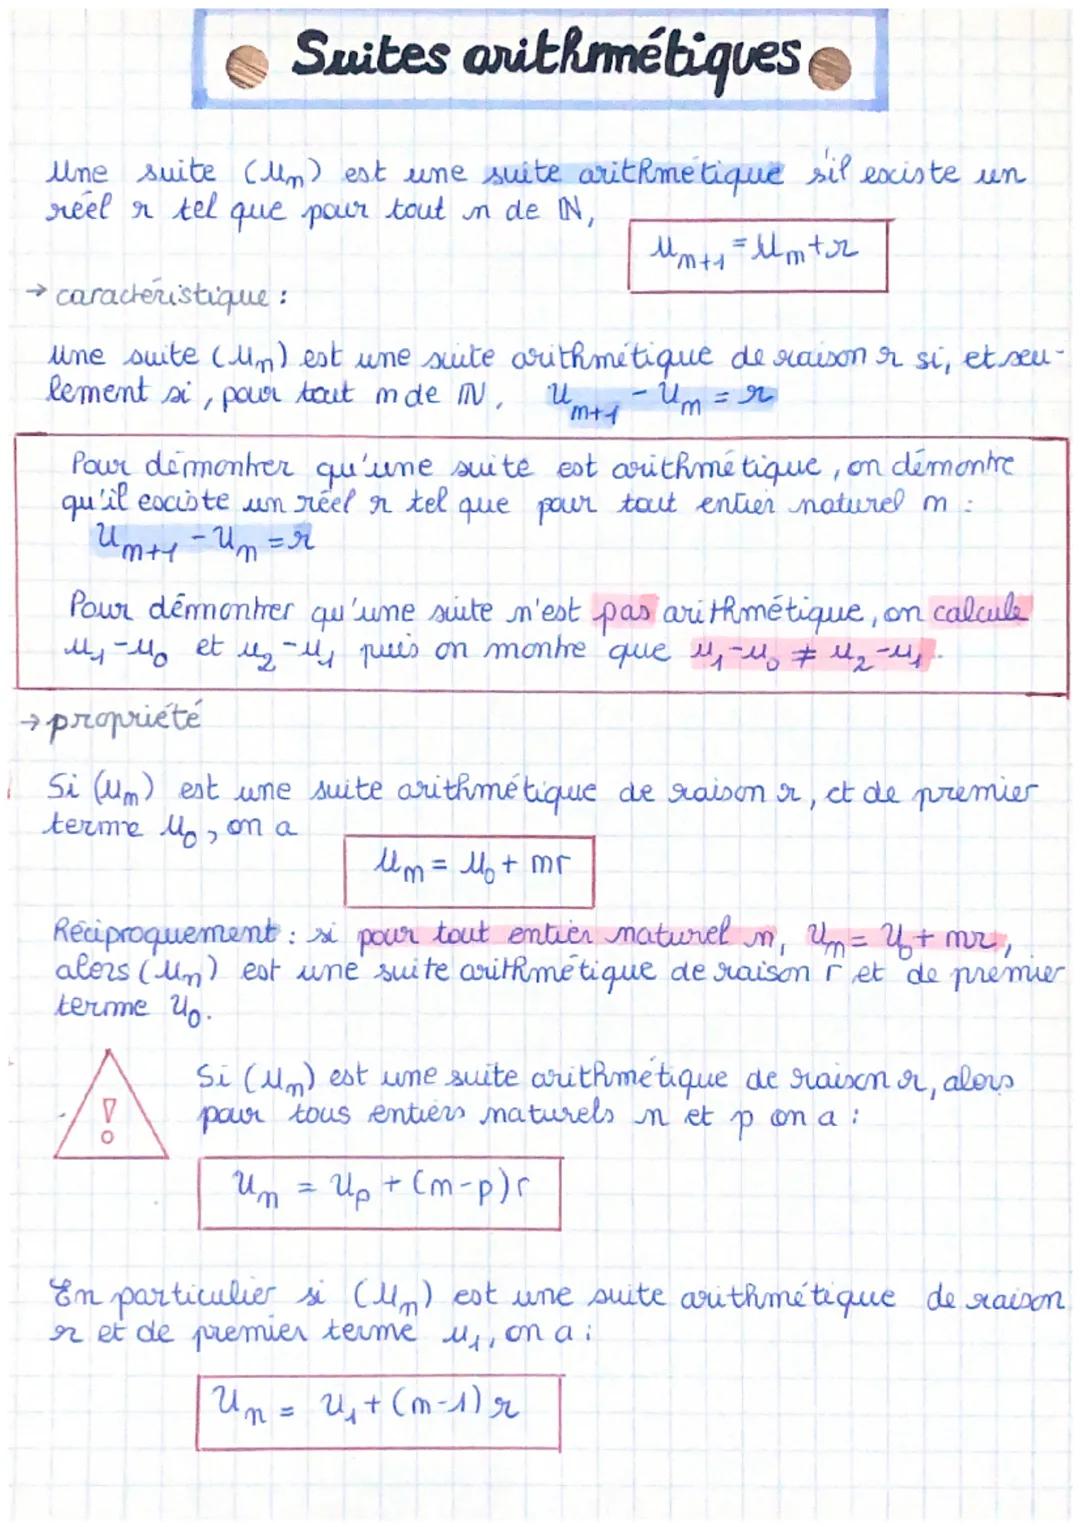 Suites arithmétiques
Une suite (Un) est une suite arithmétique s'il existe un
réel r tel que pour tout n de ℕ,
Un+1 = Un + r
→ caractéristique :
Une suite (Un) est une suite arithmétique de raison r si, et seu-
lement si, pour tout n de ℕ, Un+1 - Un = r
Pour démontrer qu'une suite est arithmétique, on démontre
qu'il existe un réel r tel que pour tout entier naturel n :
Un+1 - Un = r
Pour démontrer qu'une suite n'est pas arithmétique, on calcule
u1-u0 et u2-u1 puis on montre que u1-u0 ≠ u2-u1.
→ propriété
Si (Un) est une suite arithmétique de raison r, et de premier
terme U0, on a
Un = U0 + nr
Réciproquement : si pour tout entier naturel n, Un = U0 + nr,
alors (Un) est une suite arithmétique de raison r et de premier
terme U0.
!
Si (Un) est une suite arithmétique de raison r, alors
pour tous entiers naturels n et p on a :
Un = Up + (n-p)r
En particulier si (Un) est une suite arithmétique de raison
r et de premier terme u1, on a :
Un = U1 + (n-1) r